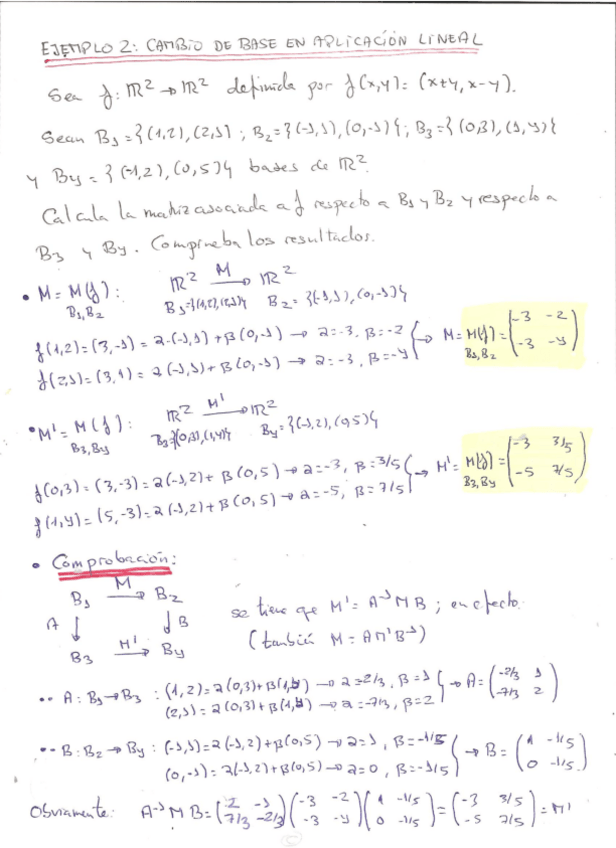 EJEMPLO 2: CAMBIO DE BASE EN APLICACIÓN LINEAL
Sea f: ℝ² → ℝ² definida por f(x,y) = (x+y, x-y).
Sean B₁={(1,2),(2,1)}; B₂={(-1,1),(0,-1)}; B₃={(0,3),(1,4)}
y B₄={(-1,2),(0,5)} bases de ℝ².
Calcula la matriz asociada a f respecto a B₁ y B₂ y respecto a
B₃ y B₄. Comprueba los resultados.
• M = M(f): ℝ² M→ ℝ²
B₁,B₂ B₁={(1,2),(2,1)} B₂={(-1,1),(0,-1)}
f(1,2)=(3,-1)=α·(-1,1)+β(0,-1) → α=-3, β=-2
f(2,1)=(3,1)=α(-1,1)+β(0,-1) → α=-3, β=-4
→ M=M(f)=(-3 -2
-3 -4)
B₁,B₂
• M'=M(f): ℝ² M'→ ℝ²
B₃,B₄ B₃={(0,3),(1,4)} B₄={(-1,2),(0,5)}
f(0,3)=(3,-3)=α(-1,2)+β(0,5) → α=-3, β=3/5
f(1,4)=(5,-3)=α(-1,2)+β(0,5) → α=-5, β=7/5
→ M'=M(f)=(-3 3/5
-5 7/5)
B₃,B₄
• Comprobación:
B₁ M→ B₂
A ↓ ↓ B
B₃ M'→ B₄
se tiene que M'=A⁻¹MB; en efecto.
(también M=AM'B⁻¹)
•• A: B₁→B₃: (1,2)=α(0,3)+β(1,4) → α=-2/3, β=1
(2,1)=α(0,3)+β(1,4) → α=-7/3, β=2
→ A=(-2/3 1
-7/3 2)
•• B: B₂→B₄: (-1,1)=α(-1,2)+β(0,5) → α=1, β=-1/5
(0,-1)=α(-1,2)+β(0,5) → α=0, β=-1/5
→ B=(1 -1/5
0 -1/5)
Obviamente: A⁻¹MB=(2 -1
7/3 -2/3)(-3 -2
-3 -4)(1 -1/5
0 -1/5)=(-3 3/5
-5 7/5)=M'